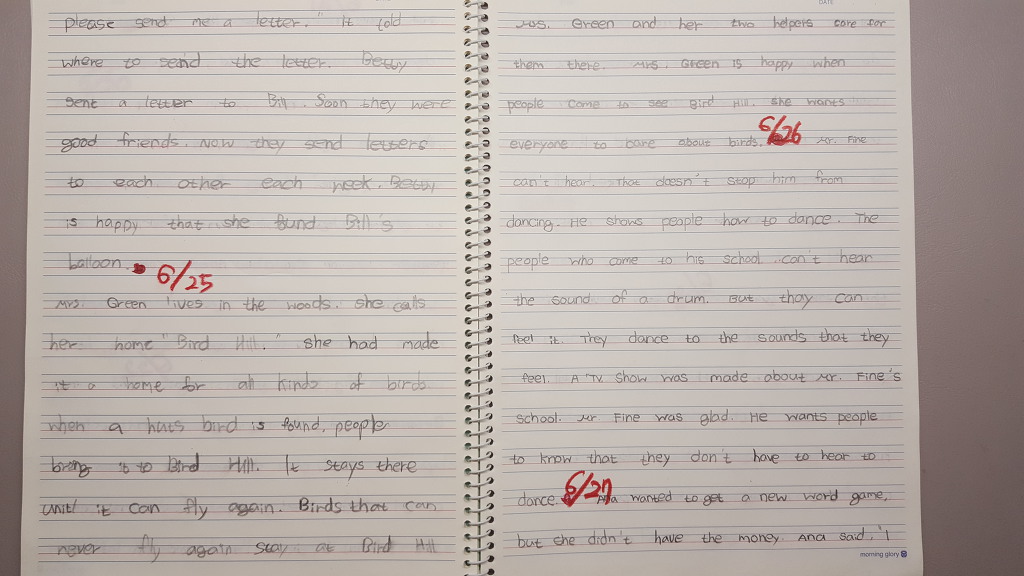 please send me a letter." It told
where to send the letter. Betty
sent a letter to Bill. Soon they were
good friends. Now they send letters
to each other each week. Betty
is happy that she fund Bill's
balloon. 6/25
Mrs. Green lives in the woods. She calls
her home "Bird Hill." she had made
it a home for all kinds of birds
when a huts bird is found, people
bring it to Bird Hill. It stays there
until it can fly again. Birds that can
never fly again stay at Bird Hill
DATE
Mrs. Green and her two helpers care for
them there. Mrs. Green is happy when
people come to see Bird Hill. she wants
everyone to bare about birds. 6/26 Mr. Fine
can't hear. That doesn't stop him from
dancing. He shows people how to dance. The
people who come to his school can't hear
the sound of a drum. But thay can
feel it. They dance to the sounds that they
feel. A "TV show was made about Mr. Fine's
school. Mr Fine was glad. He wants people
to know that they don't have to hear to
dance. 6/27 Ana wanted to get a new word game,
but she didn't have the money. Ana said, "I
morning glory